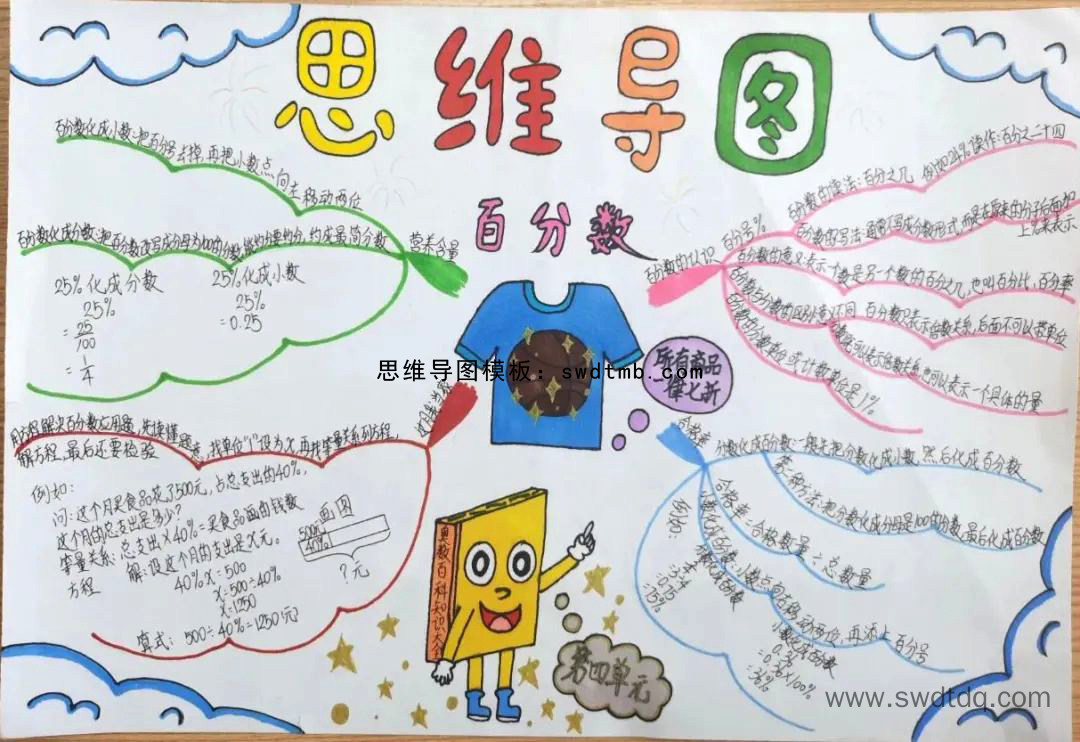 思维导图
百分数
百分数化成小数：把百分号去掉，再把小数点向左移动两位
百分数化成分数：把百分数改写成分母为100的分数，能约分要约分，约成最简分数
营养含量
25%化成分数
25%
=25/100
=1/4
25%化成小数
25%
=0.25
百分数的认识
百分号%
百分数的读法：百分之几 例如24%读作：百分之二十四
百分数的写法：通常不写成分数形式，而是在原来的分子后面加
上%来表示
百分数的意义：表示一个数是另一个数的百分之几，也叫百分比，百分率
百分数与分数的区别：意义不同 百分数只表示倍数关系，后面不可以带单位
分数既可以表示倍数关系，也可以表示一个具体的量
百分数的分数单位或计数单位是1%
思维导图模板：swdtmb.com
所有商品
一律七折
用方程解决百分数应用题，先读懂题意，找单位"1"设为x，再找等量关系列方程，
解方程，最后还要检验
例如：
这个月买食品花了500元，占总支出的40%，
问：这个月的总支出是多少？
等量关系：总支出×40%=买食品画的钱数
方程 解：设这个月的支出是x元。
40%x=500
x=500÷40%
x=1250
算式：500÷40%=1250(元)
画图
500元
40%
?元
奥数百科知识大全
第四单元
合格率
分数化成百分数：一般先把分数化成小数，然后化成百分数
第二种方法：把分数化成分母是100的分数，最后化成百分数
合格率=合格数量÷总数量
小数化成百分数：小数点向右移动两位，再添上百分号
小数化成百分数
0.36
=0.36×100%
=36%
例如：
=3÷4
=0.75
=75%
www.swdtdq.com